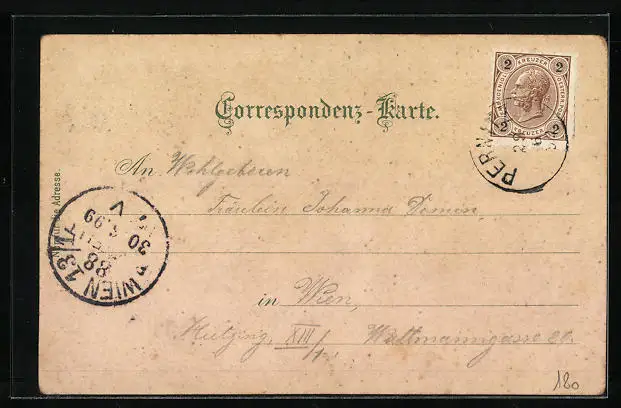 2 KREUZER 2
2 KREUZER 2
PERN
Correspondenz-Karte.
An Wohlgeboren
Fräulein Johanna
in Wien,
Hietzing, XIII/1. Wattmanngasse 20.
Adresse.
WIEN 13/1
88
30 5.99
V
180